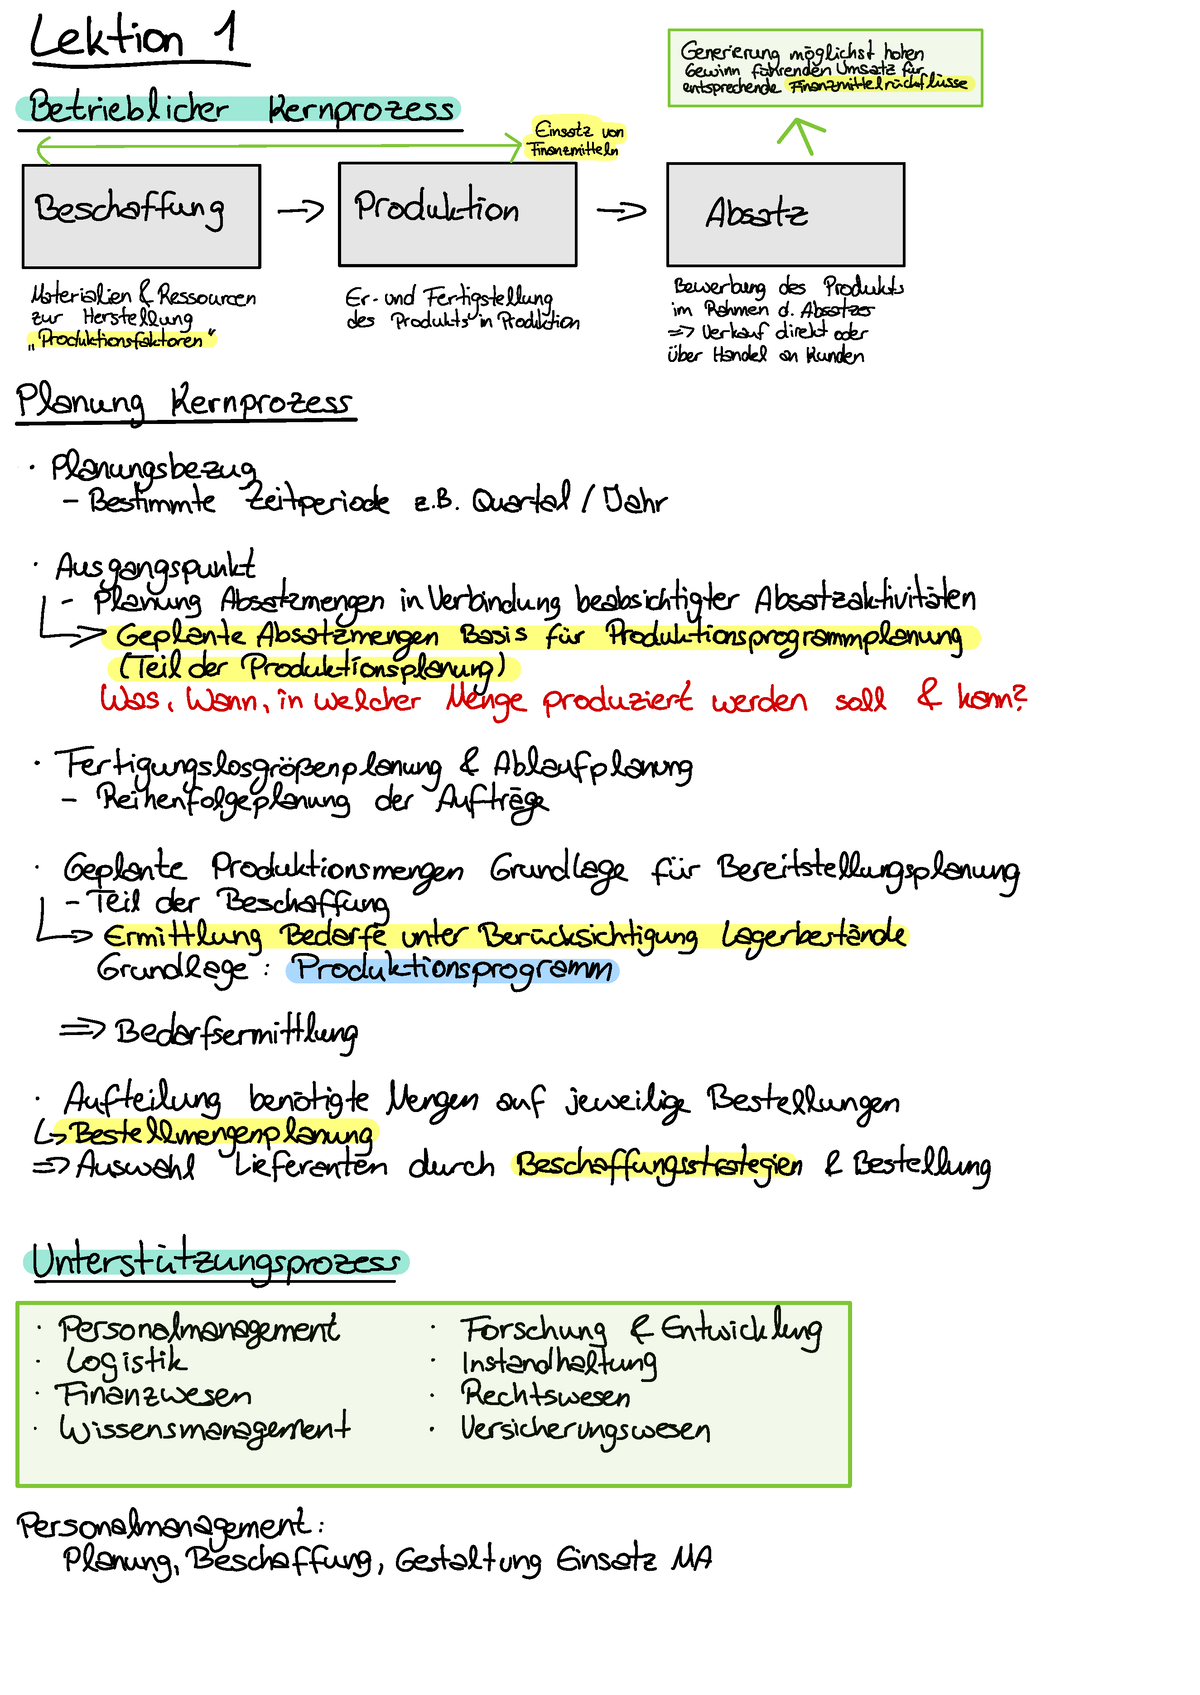 Lektion 1
Generierung möglichst hohen
Gewinn führenden Umsatz für
entsprechende Finanzmittelrückflüsse
Betrieblicher Kernprozess
Einsatz von
Finanzmitteln
Beschaffung → Produktion → Absatz
Materialien & Ressourcen
zur Herstellung
„Produktionsfaktoren"
Er- und Fertigstellung
des Produkts in Produktion
Bewerbung des Produkts
im Rahmen d. Absatzes
=> Verkauf direkt oder
über Handel an Kunden
Planung Kernprozess
· Planungsbezug
- Bestimmte Zeitperiode z.B. Quartal / Jahr
· Ausgangspunkt
- Planung Absatzmengen in Verbindung beabsichtigter Absatzaktivitäten
→ Geplante Absatzmengen Basis für Produktionsprogrammplanung
(Teil der Produktionsplanung)
Was, Wann, in welcher Menge produziert werden soll & kann?
· Fertigungslosgrößenplanung & Ablaufplanung
- Reihenfolgeplanung der Aufträge
· Geplante Produktionsmengen Grundlage für Bereitstellungsplanung
- Teil der Beschaffung
→ Ermittlung Bedarfe unter Berücksichtigung Lagerbestände
Grundlage: Produktionsprogramm
=> Bedarfsermittlung
· Aufteilung benötigte Mengen auf jeweilige Bestellungen
↳ Bestellmengenplanung
=> Auswahl Lieferanten durch Beschaffungsstrategien & Bestellung
Unterstützungsprozess
· Personalmanagement
· Logistik
· Finanzwesen
· Wissensmanagement
· Forschung & Entwicklung
· Instandhaltung
· Rechtswesen
· Versicherungswesen
Personalmanagement:
Planung, Beschaffung, Gestaltung Einsatz MA